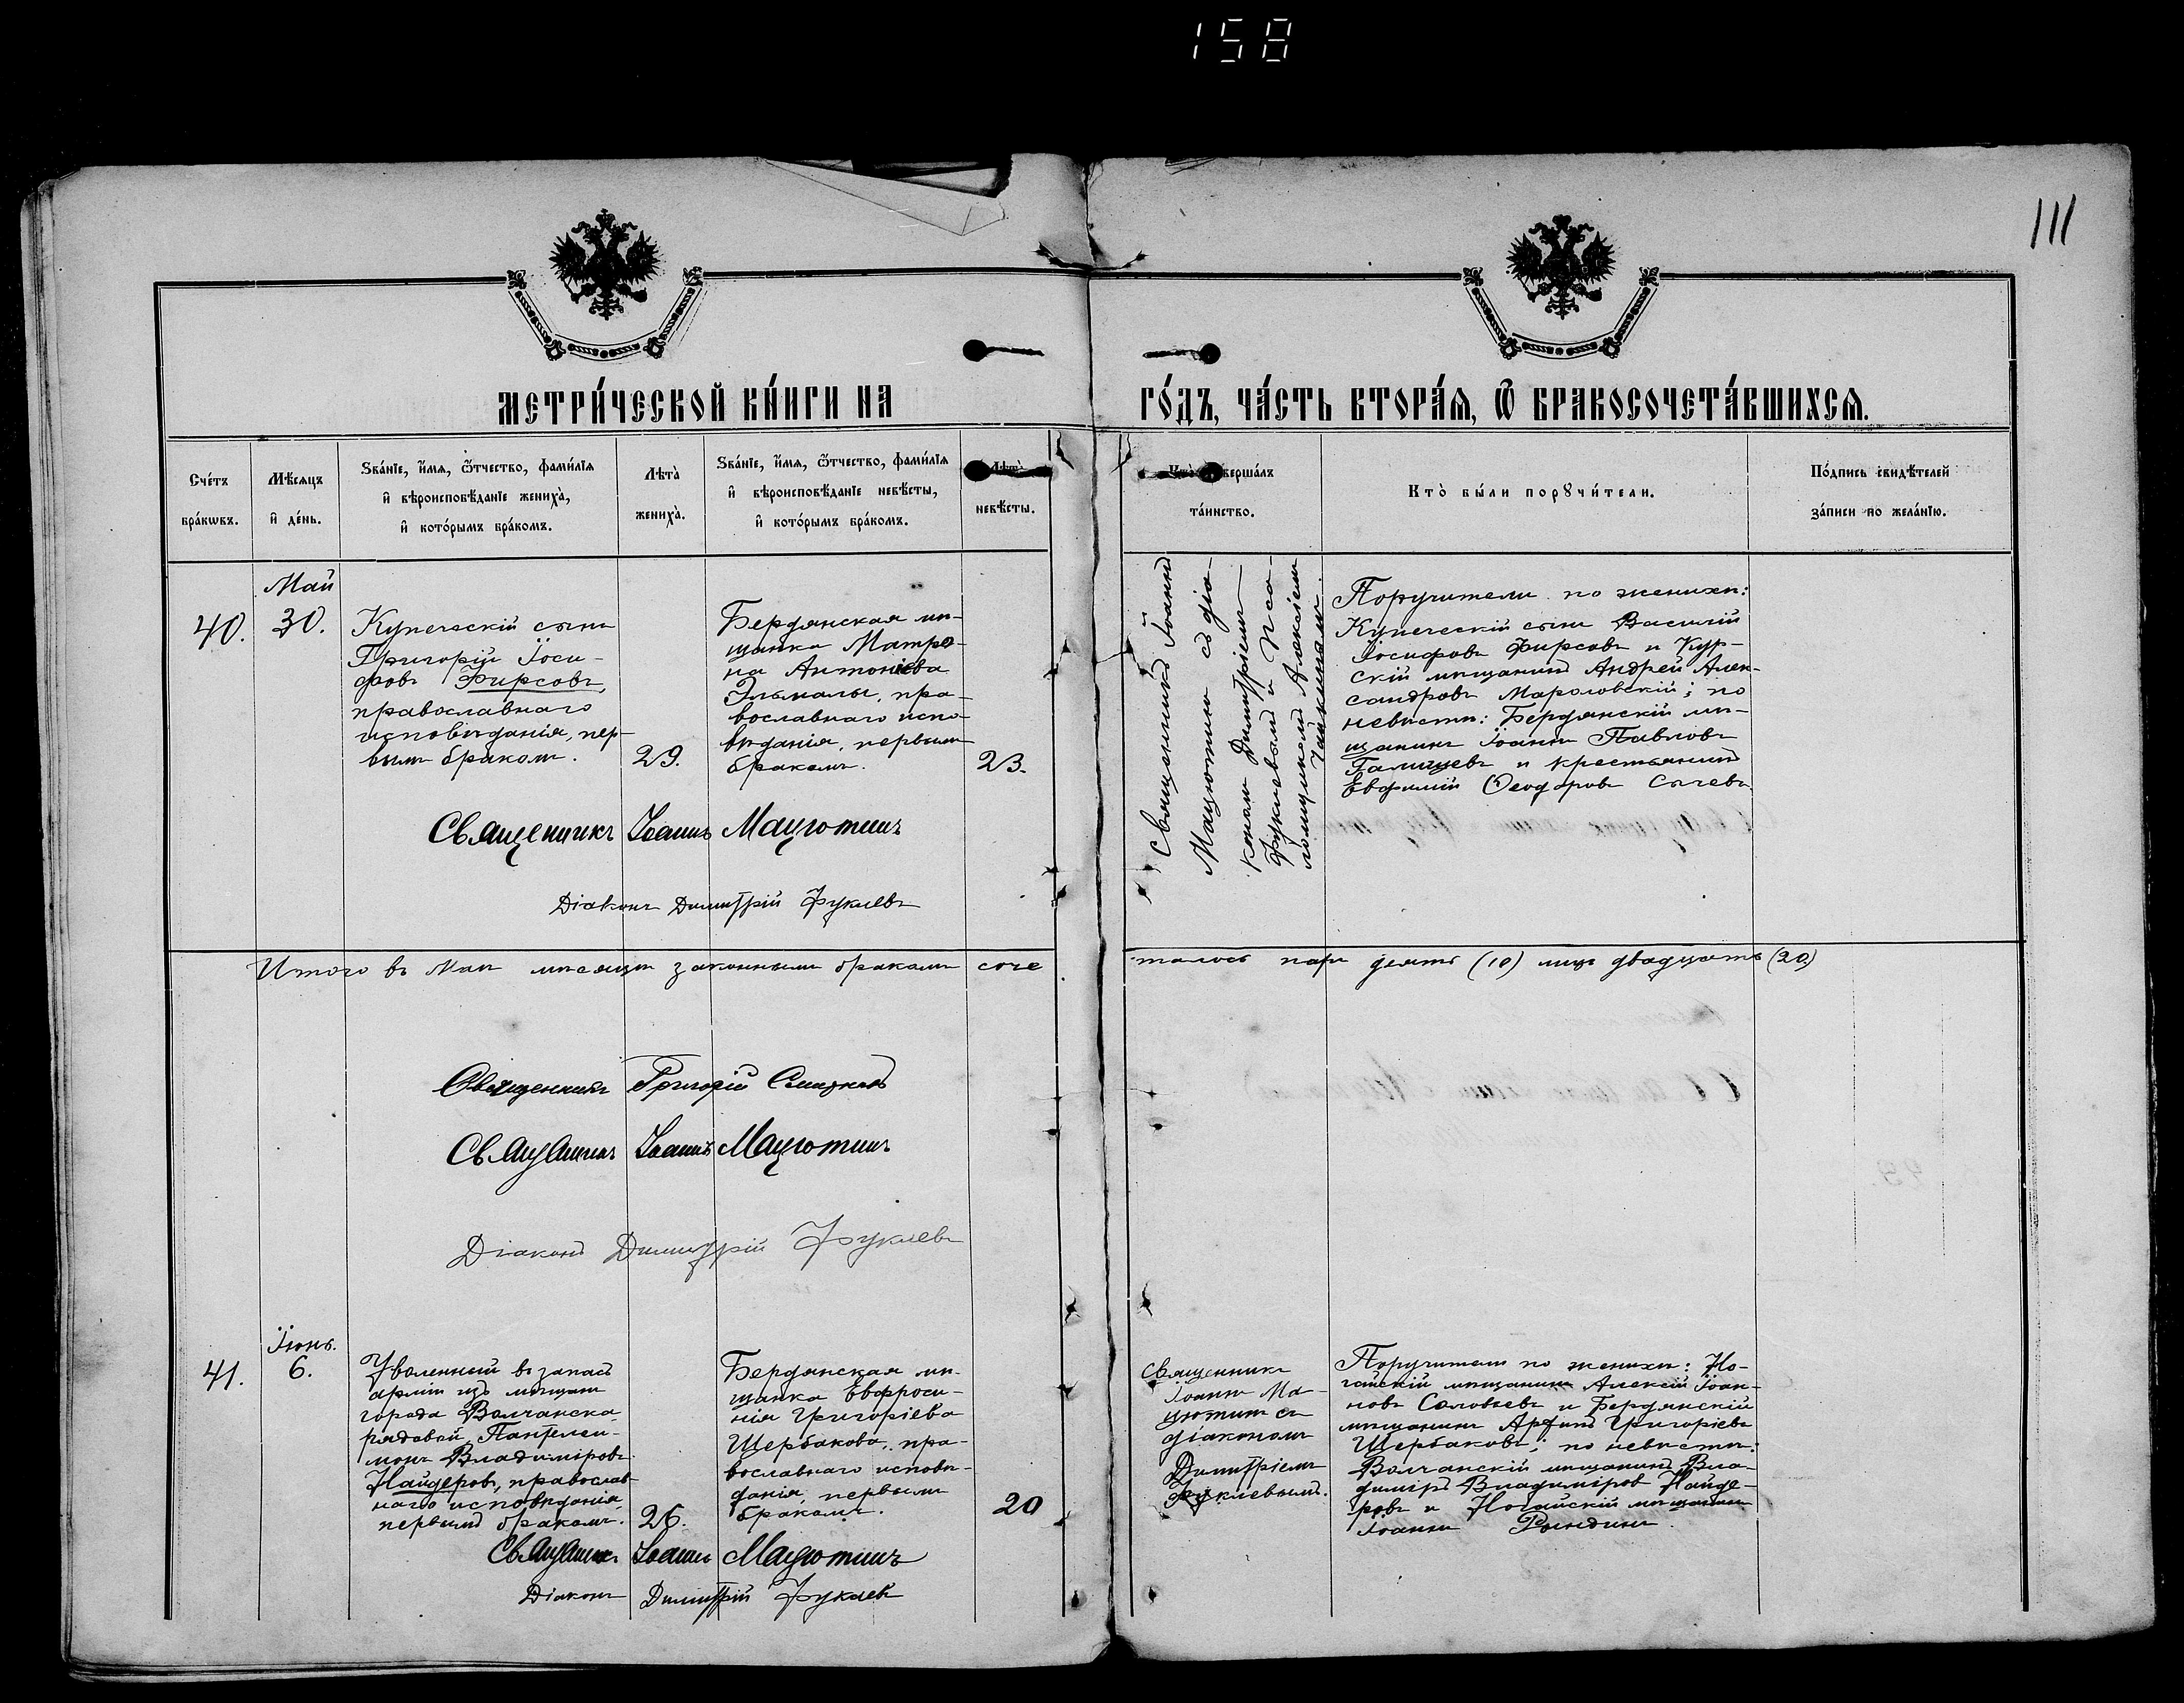 158
111
МЕТРИ́ЧЕСКОЙ КНИ́ГИ НА ГО́ДЪ, ЧА́СТЬ ВТОРА́Я, Ѿ БРАКОСОЧЕТА́ВШИХСЯ.
Сче́тъ бра́кѡвъ.
Мѣ́сяцъ и҆ де́нь.
Ѕва́нїе, и҆́мя, ѻ҆́тчество, фами́лїя
и҆ вѣроисповѣ́данїе жениха̀,
и҆ кото́рымъ бра́комъ.
Лѣта̀ жениха̀.
Ѕва́нїе, и҆́мя, ѻ҆́тчество, фами́лїя
и҆ вѣроисповѣ́данїе невѣ́сты,
и҆ кото́рымъ бра́комъ.
Лѣта̀ невѣ́сты.
Кто̀ соверша́лъ
та́инство.
Кто̀ бы́ли порꙋчи́тели.
По́дпись свидѣ́телей
за́писи по жела́нїю.
Май
40.
30.
Купеческій сынъ
Григорій Іоси-
фовъ Фирсовъ,
православнаго
исповѣданія, пер-
вымъ бракомъ.
29.
Бердянская мѣ-
щанка Матро-
на Антоніева
пра-
вославнаго испо-
вѣданія, первымъ
бракомъ.
23.
Священникъ Іоаннъ
Мацютинъ съ діа-
кономъ Димитріемъ
Фуклевымъ и Псa-
ломщикомъ Алексіемъ
Поручители по женихѣ:
Купеческій сынъ Василій
Іосифовъ Фирсовъ и Кур-
скій мѣщанинъ Андрей Алек-
сандровъ Мароловскій; по
невѣстѣ: Бердянскій мѣ-
щанинъ Іоаннъ Павловъ
и крестьянинъ
Евфимій Ѳеодоровъ Сычевъ
Священникъ Іоаннъ Мацютинъ
Діаконъ Димитрій Фуклевъ
Итого въ Маѣ мѣсяцѣ законнымъ бракомъ соче
талось паръ десять (10) лицъ двадцать (20)
Священникъ Григорій
Священникъ Іоаннъ Мацютинъ
Діаконъ Димитрій Фуклевъ
Іюнь.
41.
6.
Уволенный въ запасъ
арміи изъ мѣщанъ
города Волчанска,
рядовой Пантелеи-
монъ Владиміровъ
Найдеровъ, православ-
наго исповѣданія,
первымъ бракомъ.
26.
Бердянская мѣ-
щанка Евфроси-
нія Григоріева
Щербакова, пра-
вославнаго исповѣ-
данія, первымъ
бракомъ.
20
Священникъ
Іоаннъ Ма-
цютинъ съ
діакономъ
Димитріемъ
Фуклевымъ.
Поручители по женихѣ: Но-
гайскій мѣщанинъ Алексій Іоан-
новъ Соловьевъ и Бердянскій
мѣщанинъ Григоріевъ
Щербаковъ; по невѣстѣ:
Волчанскій мѣщанинъ Вла-
диміръ Владиміровъ Найде-
ровъ и Ногайскій мѣщанинъ
Іоаннъ Рындинъ.
Священникъ Іоаннъ Мацютинъ
Діаконъ Димитрій Фуклевъ